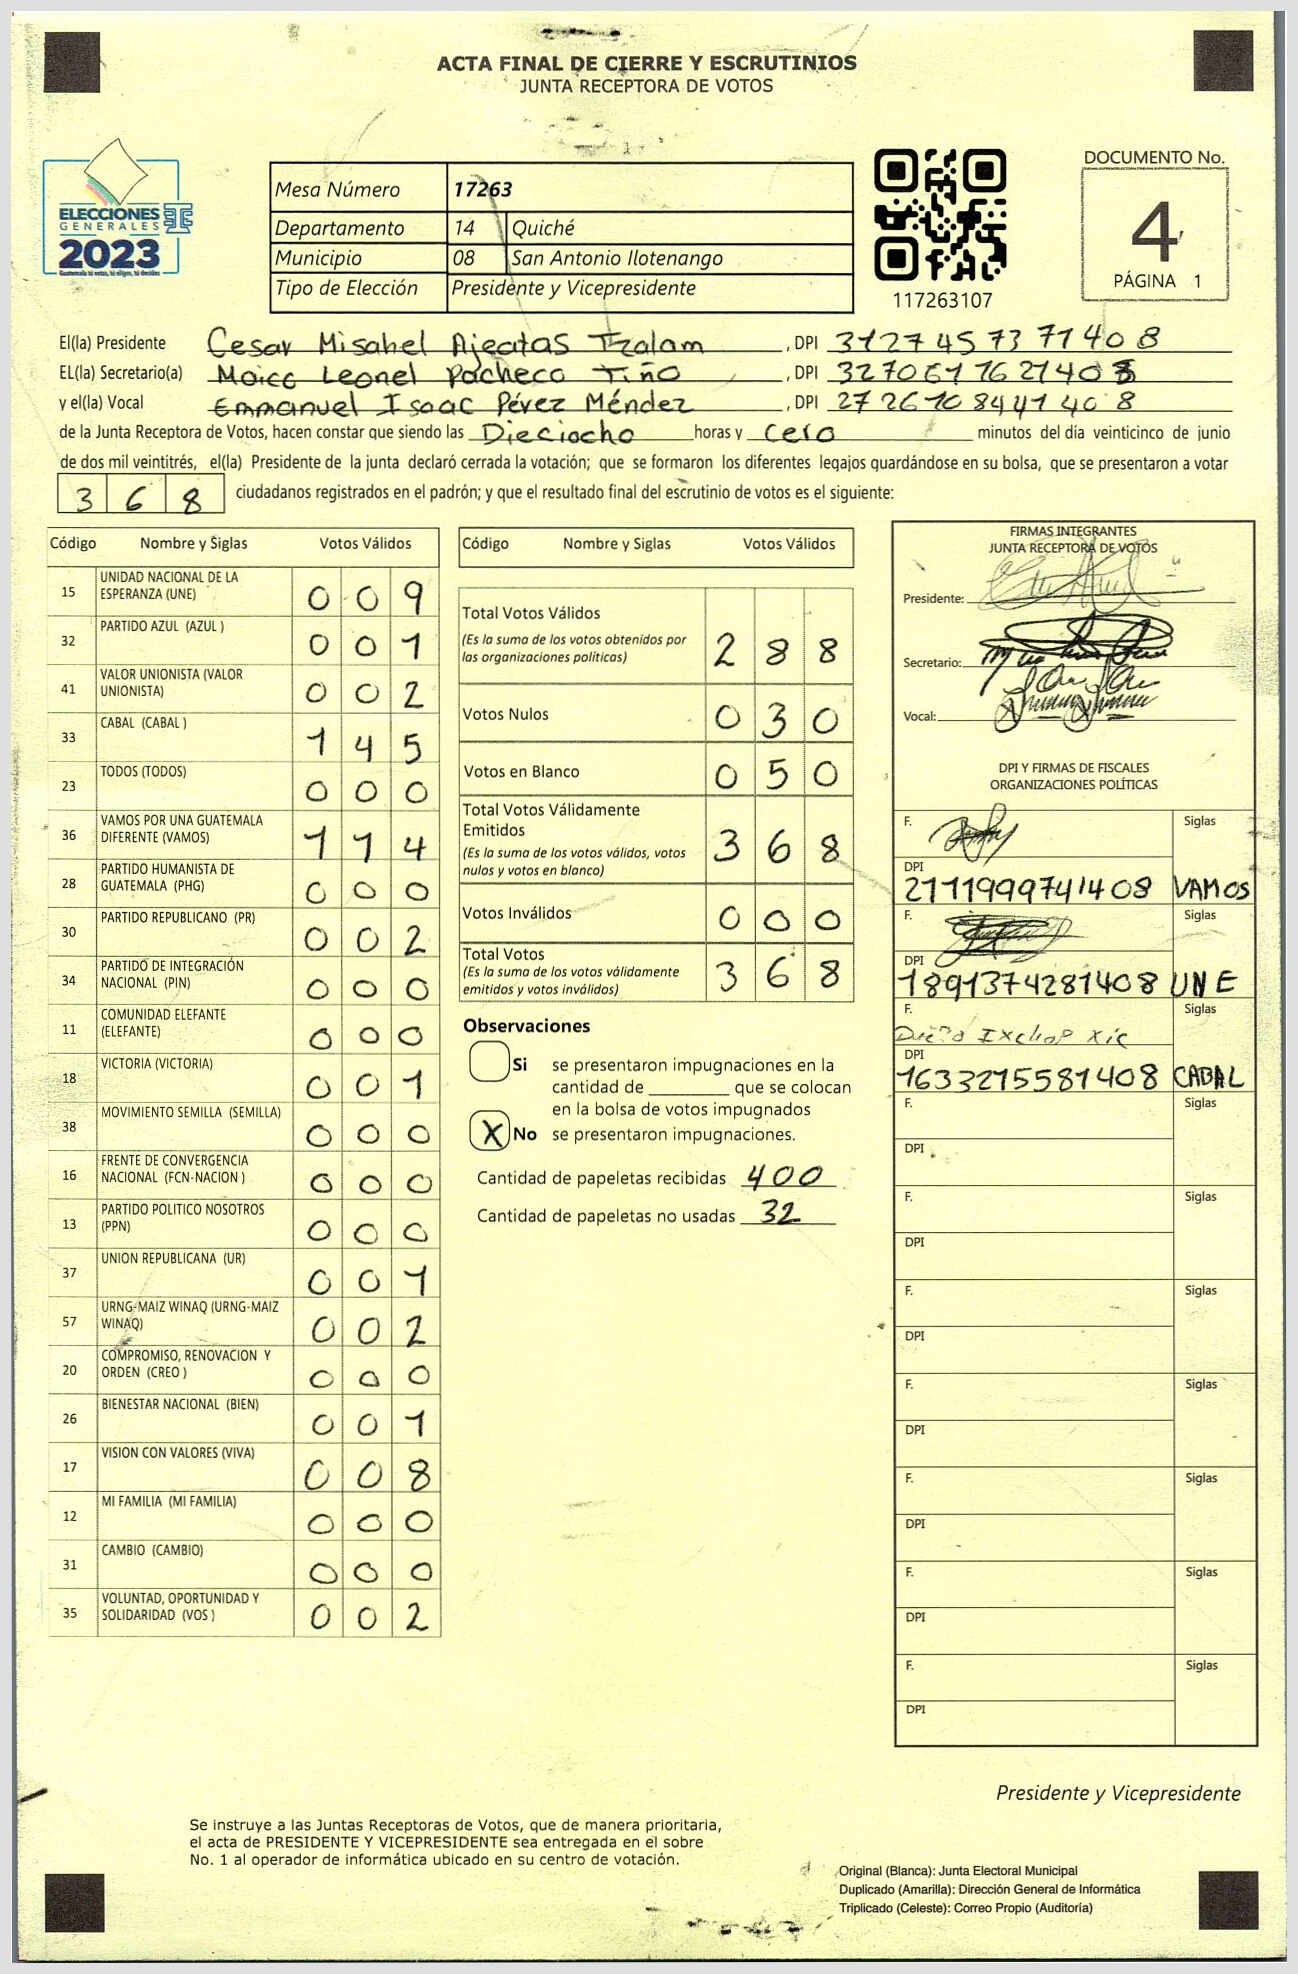 ACTA FINAL DE CIERRE Y ESCRUTINIOS
JUNTA RECEPTORA DE VOTOS
ELECCIONES
GENERALES
2023
Guatemala tú votas, tú eliges, tú decides
Mesa Número 17263
Departamento 14 Quiché
Municipio 08 San Antonio Ilotenango
Tipo de Elección Presidente y Vicepresidente
117263107
DOCUMENTO No.
4
PÁGINA 1
El(la) Presidente Cesar Misahel Ajeatas Tzalam, DPI 3127457371408
EL(la) Secretario(a) Leonel Pacheco Tiño, DPI
y el(la) Vocal Emmanuel Isaac Pérez Méndez, DPI 2726108441408
de la Junta Receptora de Votos, hacen constar que siendo las Dieciocho horas y cero minutos del día veinticinco de junio
de dos mil veintitrés, el(la) Presidente de la junta declaró cerrada la votación; que se formaron los diferentes legajos guardándose en su bolsa, que se presentaron a votar
368 ciudadanos registrados en el padrón; y que el resultado final del escrutinio de votos es el siguiente:
Código Nombre y Siglas Votos Válidos
15 UNIDAD NACIONAL DE LA ESPERANZA (UNE) 009
32 PARTIDO AZUL (AZUL ) 001
41 VALOR UNIONISTA (VALOR UNIONISTA) 002
33 CABAL (CABAL ) 145
23 TODOS (TODOS) 000
36 VAMOS POR UNA GUATEMALA DIFERENTE (VAMOS) 114
28 PARTIDO HUMANISTA DE GUATEMALA (PHG) 000
30 PARTIDO REPUBLICANO (PR) 002
34 PARTIDO DE INTEGRACIÓN NACIONAL (PIN) 000
11 COMUNIDAD ELEFANTE (ELEFANTE) 000
18 VICTORIA (VICTORIA) 001
38 MOVIMIENTO SEMILLA (SEMILLA) 000
16 FRENTE DE CONVERGENCIA NACIONAL (FCN-NACION ) 000
13 PARTIDO POLITICO NOSOTROS (PPN) 000
37 UNION REPUBLICANA (UR) 001
57 URNG-MAIZ WINAQ (URNG-MAIZ WINAQ) 002
20 COMPROMISO, RENOVACION Y ORDEN (CREO ) 000
26 BIENESTAR NACIONAL (BIEN) 001
17 VISION CON VALORES (VIVA) 008
12 MI FAMILIA (MI FAMILIA) 000
31 CAMBIO (CAMBIO) 000
35 VOLUNTAD, OPORTUNIDAD Y SOLIDARIDAD (VOS ) 002
Código Nombre y Siglas Votos Válidos
Total Votos Válidos
(Es la suma de los votos obtenidos por
las organizaciones políticas) 288
Votos Nulos 030
Votos en Blanco 050
Total Votos Válidamente
Emitidos
(Es la suma de los votos válidos, votos
nulos y votos en blanco) 368
Votos Inválidos 000
Total Votos
(Es la suma de los votos válidamente
emitidos y votos inválidos) 368
Observaciones
Si se presentaron impugnaciones en la
cantidad de ________ que se colocan
en la bolsa de votos impugnados
X No se presentaron impugnaciones.
Cantidad de papeletas recibidas 400
Cantidad de papeletas no usadas 32
FIRMAS INTEGRANTES
JUNTA RECEPTORA DE VOTOS
Presidente:
Secretario:
Vocal:
DPI Y FIRMAS DE FISCALES
ORGANIZACIONES POLÍTICAS
F. Siglas
DPI
2111999741408 VAMOS
F. Siglas
DPI
1891374281408 UNE
F. Siglas
Ixchop Xic
DPI
1633215581408 CABAL
F. Siglas
DPI
F. Siglas
DPI
F. Siglas
DPI
F. Siglas
DPI
F. Siglas
DPI
F. Siglas
DPI
F. Siglas
DPI
Presidente y Vicepresidente
Se instruye a las Juntas Receptoras de Votos, que de manera prioritaria,
el acta de PRESIDENTE Y VICEPRESIDENTE sea entregada en el sobre
No. 1 al operador de informática ubicado en su centro de votación.
Original (Blanca): Junta Electoral Municipal
Duplicado (Amarilla): Dirección General de Informática
Triplicado (Celeste): Correo Propio (Auditoría)